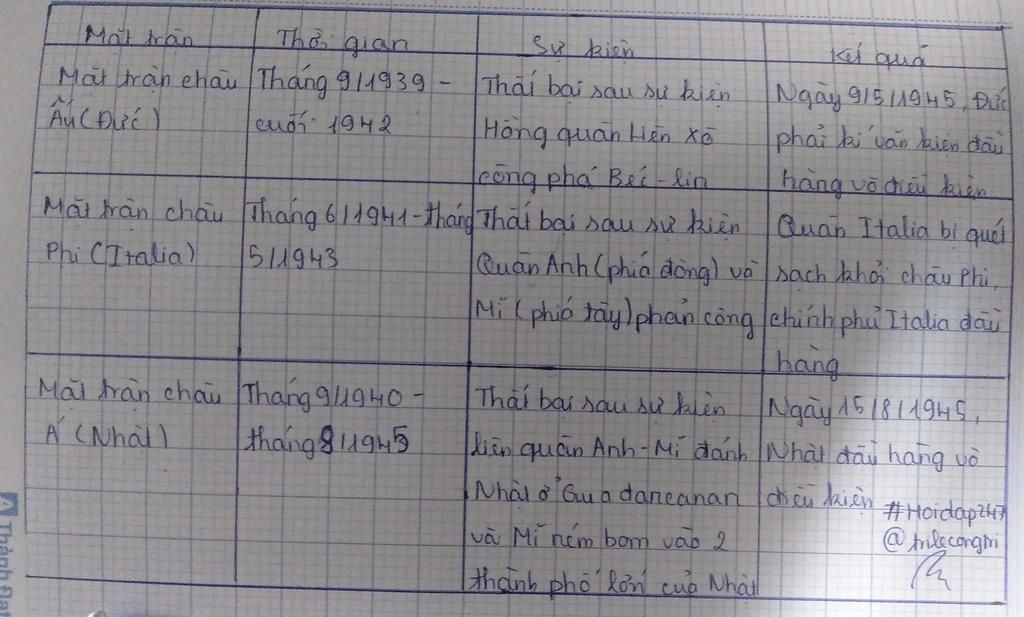 Mặt trận
Thời gian
Sự kiện
Kết quả
Mặt trận châu
Âu (Đức)
Tháng 9/1939 -
cuối 1942
Thất bại sau sự kiện
Hồng quân Liên Xô
công phá Béc-lin
Ngày 9/5/1945, Đức
phải kí văn kiện đầu
hàng vô điều kiện
Mặt trận châu
Phi (Italia)
Tháng 6/1941 - tháng
5/1943
Thất bại sau sự kiện
Quân Anh (phía đông) và
Mĩ (phía tây) phản công
Quân Italia bị quét
sạch khỏi châu Phi,
chính phủ Italia đầu
hàng
Mặt trận châu
Á (Nhật)
Tháng 9/1940 -
tháng 8/1945
Thất bại sau sự kiện
liên quân Anh-Mĩ đánh
Nhật ở Guadancanan
và Mĩ ném bom vào 2
thành phố lớn của Nhật
Ngày 15/8/1945,
Nhật đầu hàng vô
điều kiện
#Hoidap247
@trilecongtri
Thành Đạt